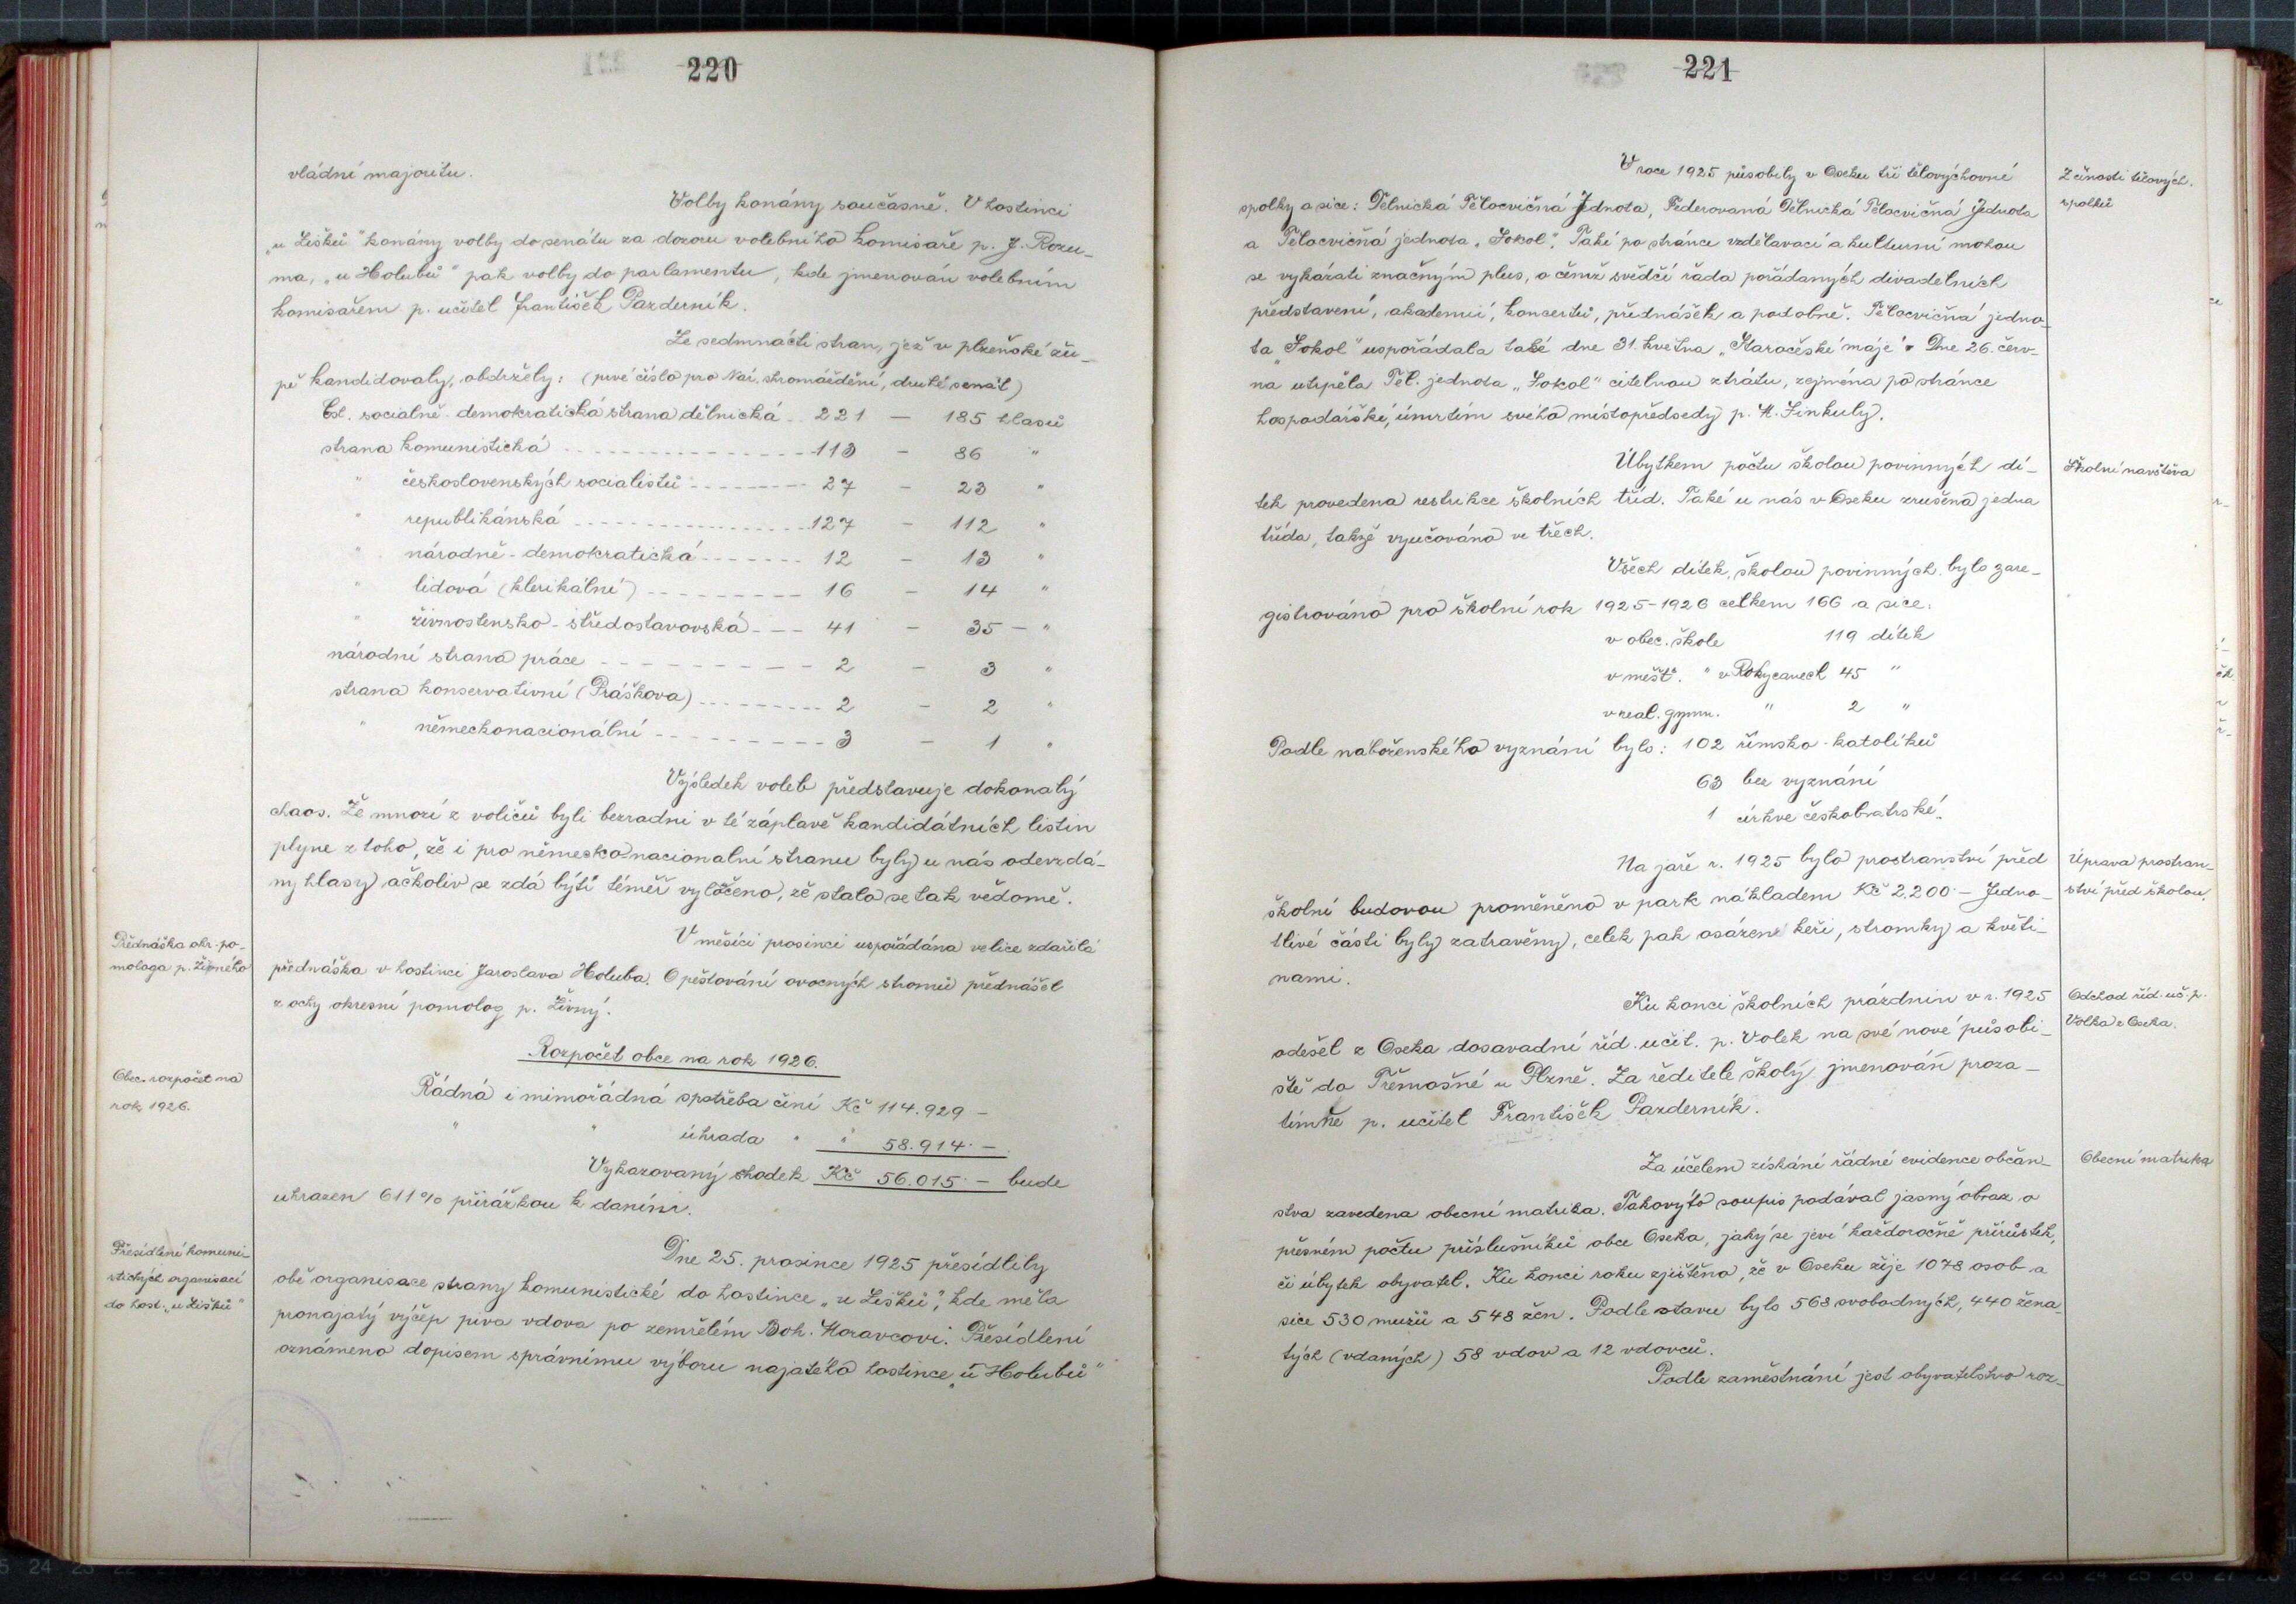 220
vládní majoritu.
Volby konány současně. V hostinci
„u Lišků" konány volby do senátu za dozoru volebního komisaře p. J. Rozu-
ma, „u Holubů" pak volby do parlamentu, kde jmenován volebním
komisařem p. učitel František Pazderník.
Ze sedmnácti stran, jež v plzeňské žu-
pě kandidovaly, obdržely: (prvé číslo pro Nár. shromáždění, druhé senát)
Čsl. sociálně-demokratická strana dělnická 221 — 185 hlasů
strana komunistická 113 — 86 "
" československých socialistů 27 — 23 "
" republikánská 127 — 112 "
" národně-demokratická 12 — 13 "
" lidová (klerikální) 16 — 14 "
" živnostensko-středostavovská 41 — 35 — "
národní strana práce 2 — 3 "
strana konservativní (Práškova) 2 — 2 "
" německonacionální 3 — 1 "
Výsledek voleb představuje dokonalý
chaos. Že mnozí z voličů byli bezradni v té záplavě kandidátních listin
plyne z toho, že i pro německo-nacionalní stranu byly u nás odevzdá-
ny hlasy, ačkoliv se zdá býti téměř vyločeno, že stalo se tak vědomě.
Přednáška okr. po-
mologa p. Živného
V měsíci prosinci uspořádána velice zdařilá
přednáška v hostinci Jaroslava Holuba. O pěstování ovocných stromů přednášel
z ochy okresní pomolog p. Živný.
Rozpočet obce na rok 1926.
Obec. rozpočet na
rok 1926.
Řádná i mimořádná spotřeba činí Kč 114.929 —
" " úhrada " " 58.914.—
Vykazovaný schodek Kč 56.015.— bude
uhrazen 611% přirážkou k daním.
Přesídlení komuni-
stických organisací
do host. „u Lišků"
Dne 25. prosince 1925 přesídlily
obě organisace strany komunistické do hostince „u Lišků", kde měla
pronajatý výčep piva vdova po zemřelém Boh. Moravcovi. Přesídlení
oznámeno dopisem správnímu výboru najatého hostince „u Holubů"
221
V roce 1925 působily v Oseku tři tělovýchovné
Z činosti tělových.
spolků
spolky a sice: Dělnická Tělocvičná Jednota, Federovaná Dělnická Tělocvičná Jednota
a Tělocvičná jednota „Sokol". Také po stránce vzdělavací a kulturní mohou
se vykázati značným plus, o čemž svědčí řada pořádaných divadelních
představení, akademií, koncertů, přednášek a podobně. Tělocvičná jedno-
ta „Sokol" uspořádala také dne 31. května „Staročeské máje". Dne 26. červ-
na utrpěla Těl. jednota „Sokol" citelnou ztrátu, zejména po stránce
hospodářské, úmrtím svého místopředsedy p. M. Finkuly.
Úbytkem počtu školou povinných dí-
Školní navštěva
tek provedena restrikce školních tříd. Také u nás v Oseku zrušena jedna
třída, takže vyučováno ve třech.
Všech dítek, školou povinných bylo zare-
gistrováno pro školní rok 1925-1926 celkem 166 a sice.
v obec. škole 119 dítek
v měšť. " v Rokycanech 45 "
v real. gymn. " 2 "
Podle naboženského vyznání bylo: 102 římsko-katolíků
63 bez vyznání
1 církve českobratrské.
Na jaře r. 1925 bylo prostranství před
Úprava prostran-
ství před školou.
školní budovou proměněno v park nákladem Kč 2.200.— Jedno-
tlivé části byly zatravěny, celek pak osázen keři, stromky a květi-
nami.
Ku konci školních prázdnin v r. 1925
Odchod říd. uč. p.
Volka z Oseka.
odešel z Oseka dosavadní říd. učit. p. Volek na své nové působi-
ště do Třemošné u Plzně. Za ředitele školy jmenován proza-
timně p. učitel František Pazderník.
Za účelem získání řádné evidence občan-
Obecní matrika
stva zavedena obecní matrika. Takovýto soupis podával jasný obraz o
přesném počtu příslušníků obce Oseka, jaký se jeví každoročně přírůstek,
či úbytek obyvatel. Ku konci roku zjištěno, že v Oseku žije 1078 osob a
sice 530 mužů a 548 žen. Podle stavu bylo 568 svobodných, 440 žena-
tých (vdaných) 58 vdov a 12 vdovců.
Podle zaměstnání jest obyvatelstvo roz-